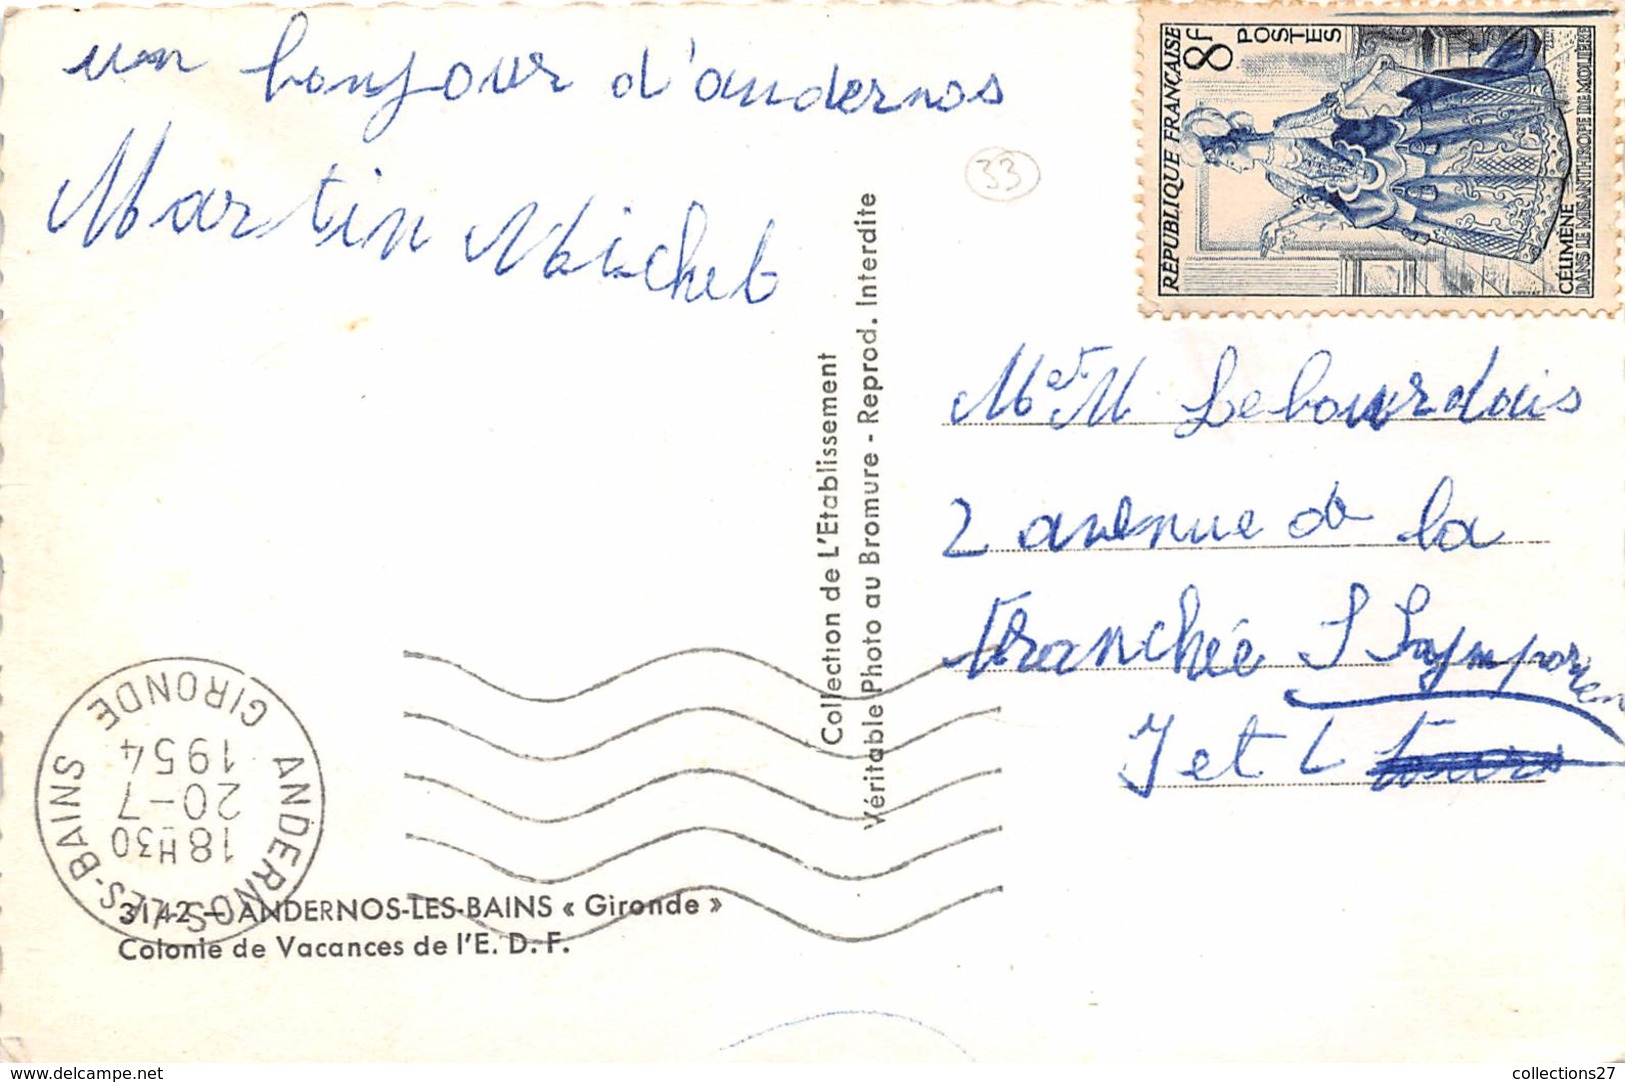 un bonjour d'andernos
Martin Michel
33
RÉPUBLIQUE FRANÇAISE
8F
POSTES
CÉLIMÈNE
DANS LE MISANTHROPE DE MOLIÈRE
Collection de L'Etablissement
Véritable Photo au Bromure - Reprod. Interdite
M et M Lebourdais
2 avenue de la
Tranchée S Symporien
J et L
ANDERNOS-LES-BAINS
GIRONDE
18H30
20-7
1954
3142 - ANDERNOS-LES-BAINS « Gironde »
Colonie de Vacances de l'E. D. F.
delcampe.net
collections27